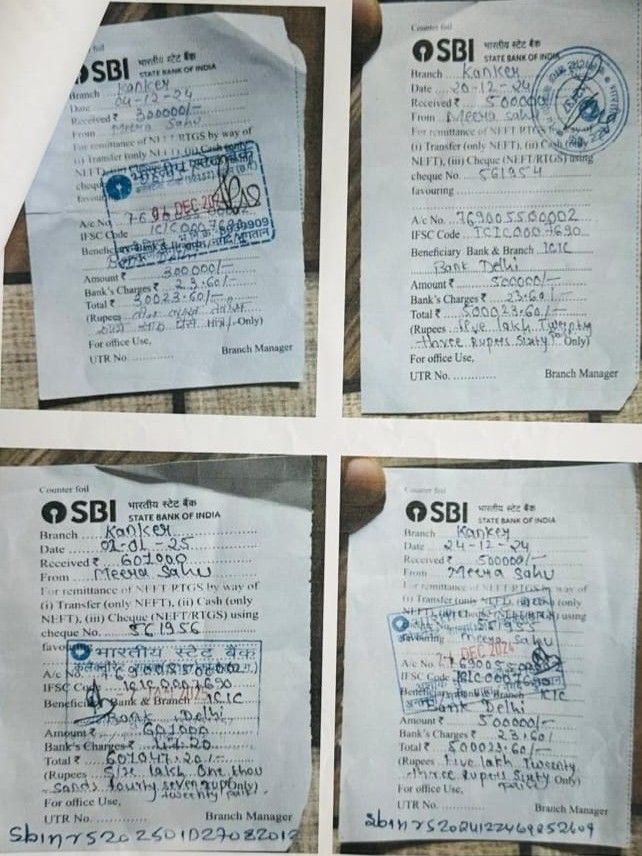 Counter foil
SBI भारतीय स्टेट बैंक
STATE BANK OF INDIA
Branch Kanker
Date 04-12-24
Received ₹ 300000/-
From Meera Sahu
For remittance of NEFT/RTGS by way of
(i) Transfer (only NEFT), (ii) Cash (only
NEFT),
A/c No. 769
IFSC Code ICIC0007690
Amount ₹ 300000/-
Bank's Charges ₹ 23.60/-
Total ₹ 30023.60/-
(Rupees
Only)
For office Use,
UTR No. Branch Manager
Counter foil
SBI भारतीय स्टेट बैंक
STATE BANK OF INDIA
Branch Kanker
Date 20-12-24
Received ₹ 500000/-
From Meera Sahu
For remittance of NEFT/RTGS by way of
(i) Transfer (only NEFT), (ii) Cash (only
NEFT), (iii) Cheque (NEFT/RTGS) using
cheque No. 561954
favouring
A/c No. 769005500002
IFSC Code ICIC0007690
Beneficiary Bank & Branch ICIC
Bank Delhi
Amount ₹ 500000/-
Bank's Charges ₹ 23.60/-
Total ₹ 500023.60/-
(Rupees five lakh Twenty
three Rupers Sixty Only)
For office Use,
UTR No. Branch Manager
Counter foil
SBI भारतीय स्टेट बैंक
STATE BANK OF INDIA
Branch Kanker
Date 01-01-25
Received ₹ 601000
From Meera Sahu
For remittance of NEFT/RTGS by way of
(i) Transfer (only NEFT), (ii) Cash (only
NEFT), (iii) Cheque (NEFT/RTGS) using
cheque No. 561956
भारतीय स्टेट बैंक
A/c No. 769005500002
IFSC Code ICIC0007690
Beneficiary Bank & Branch ICIC
Bank Delhi
Amount ₹ 601000
Bank's Charges ₹ 47.20
Total ₹ 601047.20/-
(Rupees Six lakh One thou
sands fourty seven Only)
For office Use,
UTR No. Branch Manager
Counter foil
SBI भारतीय स्टेट बैंक
STATE BANK OF INDIA
Branch Kanker
Date 24-12-24
Received ₹ 500000/-
From Meera Sahu
For remittance of NEFT/RTGS by way of
(i) Transfer (only NEFT), (ii) Cash (only
NEFT), (iii) Cheque (NEFT/RTGS) using
cheque No. 561955
favouring Meera Sahu
24 DEC 2024
A/c No. 769005500002
IFSC Code ICIC0007690
Beneficiary Bank & Branch ICIC
Bank Delhi
Amount ₹ 500000/-
Bank's Charges ₹ 23.60/-
Total ₹ 500023.60/-
(Rupees five lakh Twenty
three Rupers Sixty Only)
For office Use,
UTR No. Branch Manager